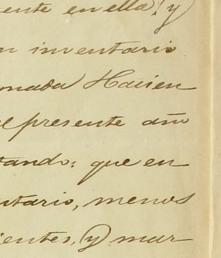 ente en ella, y
n inventario
onada Hacien
el presente año
tando; que en
ntario, menos
ientes, y mar